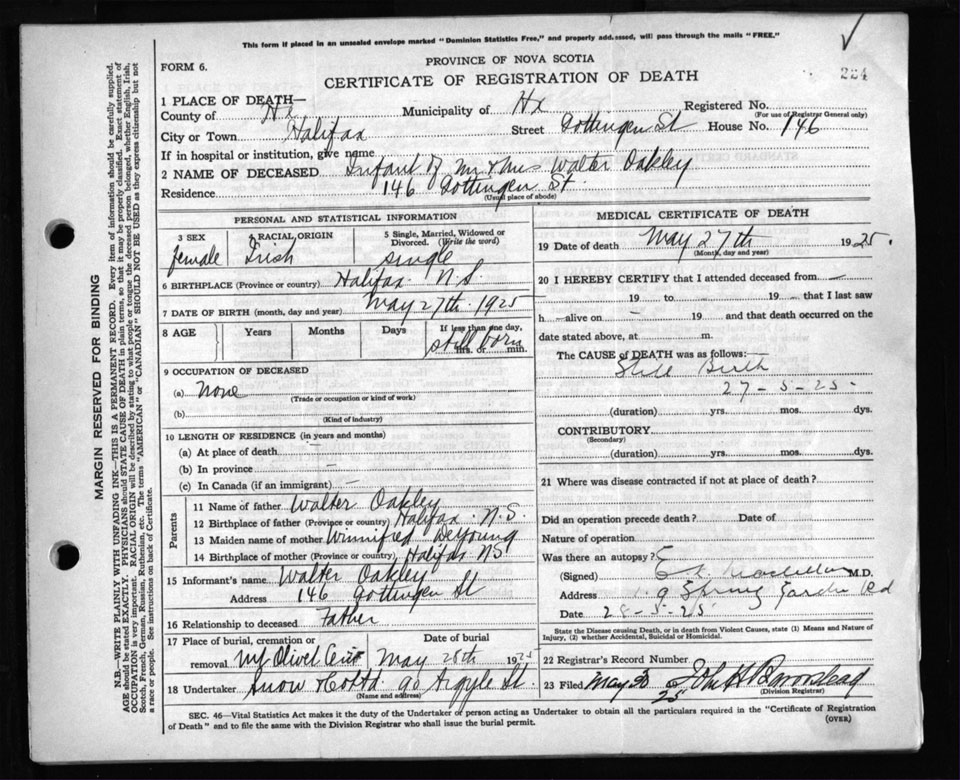 This form if placed in an unsealed envelope marked "Dominion Statistics Free," and properly addressed, will pass through the mails "FREE."
FORM 6.
PROVINCE OF NOVA SCOTIA
CERTIFICATE OF REGISTRATION OF DEATH
224
1 PLACE OF DEATH—
County of Hx Municipality of Hx Registered No.
(For use of Registrar General only)
City or Town Halifax Street Gottingen St House No. 146
If in hospital or institution, give name
2 NAME OF DECEASED Infant of Mr & Mrs Walter Oakley
Residence 146 Gottingen St.
(Usual place of abode)
PERSONAL AND STATISTICAL INFORMATION
3 SEX female
4 RACIAL ORIGIN Irish
5 Single, Married, Widowed or Divorced. (Write the word) single
6 BIRTHPLACE (Province or country) Halifax N.S.
7 DATE OF BIRTH (month, day and year) May 27th 1925
8 AGE Years Months Days If less than one day, hrs. or min. still born
9 OCCUPATION OF DECEASED
(a) None
(Trade or occupation or kind of work)
(b)
(Kind of industry)
10 LENGTH OF RESIDENCE (in years and months)
(a) At place of death —
(b) In province —
(c) In Canada (if an immigrant) —
Parents
11 Name of father Walter Oakley
12 Birthplace of father (Province or country) Halifax N.S.
13 Maiden name of mother Winnifred DeYoung
14 Birthplace of mother (Province or country) Halifax NS
15 Informant's name Walter Oakley
Address 146 Gottingen St
16 Relationship to deceased Father
17 Place of burial, cremation or removal Mt Olivet Cem
Date of burial May 28th 1925
18 Undertaker Snow & Co Ltd 90 Argyle St.
(Name and address)
MEDICAL CERTIFICATE OF DEATH
19 Date of death May 27th 1925.
(Month, day and year)
20 I HEREBY CERTIFY that I attended deceased from —
19 to 19 — that I last saw
h — alive on — 19 and that death occurred on the
date stated above, at m.
The CAUSE OF DEATH was as follows:—
Still Birth
27-5-25-
(duration) yrs. mos. dys.
CONTRIBUTORY
(Secondary)
(duration) yrs. mos. dys.
21 Where was disease contracted if not at place of death?
Did an operation precede death? Date of
Nature of operation
Was there an autopsy?
(Signed) M.D.
Address Spring Garden Rd
Date 28-5-25
State the Disease causing Death, or in death from Violent Causes, state (1) Means and Nature of Injury, (2) whether Accidental, Suicidal or Homicidal.
22 Registrar's Record Number
23 Filed May 30 25 John H Barnstead
(Division Registrar)
SEC. 46—Vital Statistics Act makes it the duty of the Undertaker or person acting as Undertaker to obtain all the particulars required in the "Certificate of Registration
of Death" and to file the same with the Division Registrar who shall issue the burial permit.
(OVER)
MARGIN RESERVED FOR BINDING
N.B.—WRITE PLAINLY WITH UNFADING INK—THIS IS A PERMANENT RECORD. Every item of information should be carefully supplied.
AGE should be stated EXACTLY. PHYSICIANS should STATE CAUSE OF DEATH in plain terms, so that it may be properly classified. Exact statement of
OCCUPATION is very important. RACIAL ORIGIN will be described by stating to what people or tongue the deceased person belonged, whether English, Irish,
Scotch, French, German, Russian, Ruthenian, etc. The terms "AMERICAN" or "CANADIAN" SHOULD NOT BE USED as they express citizenship but not
a race or people. See instructions on back of Certificate.